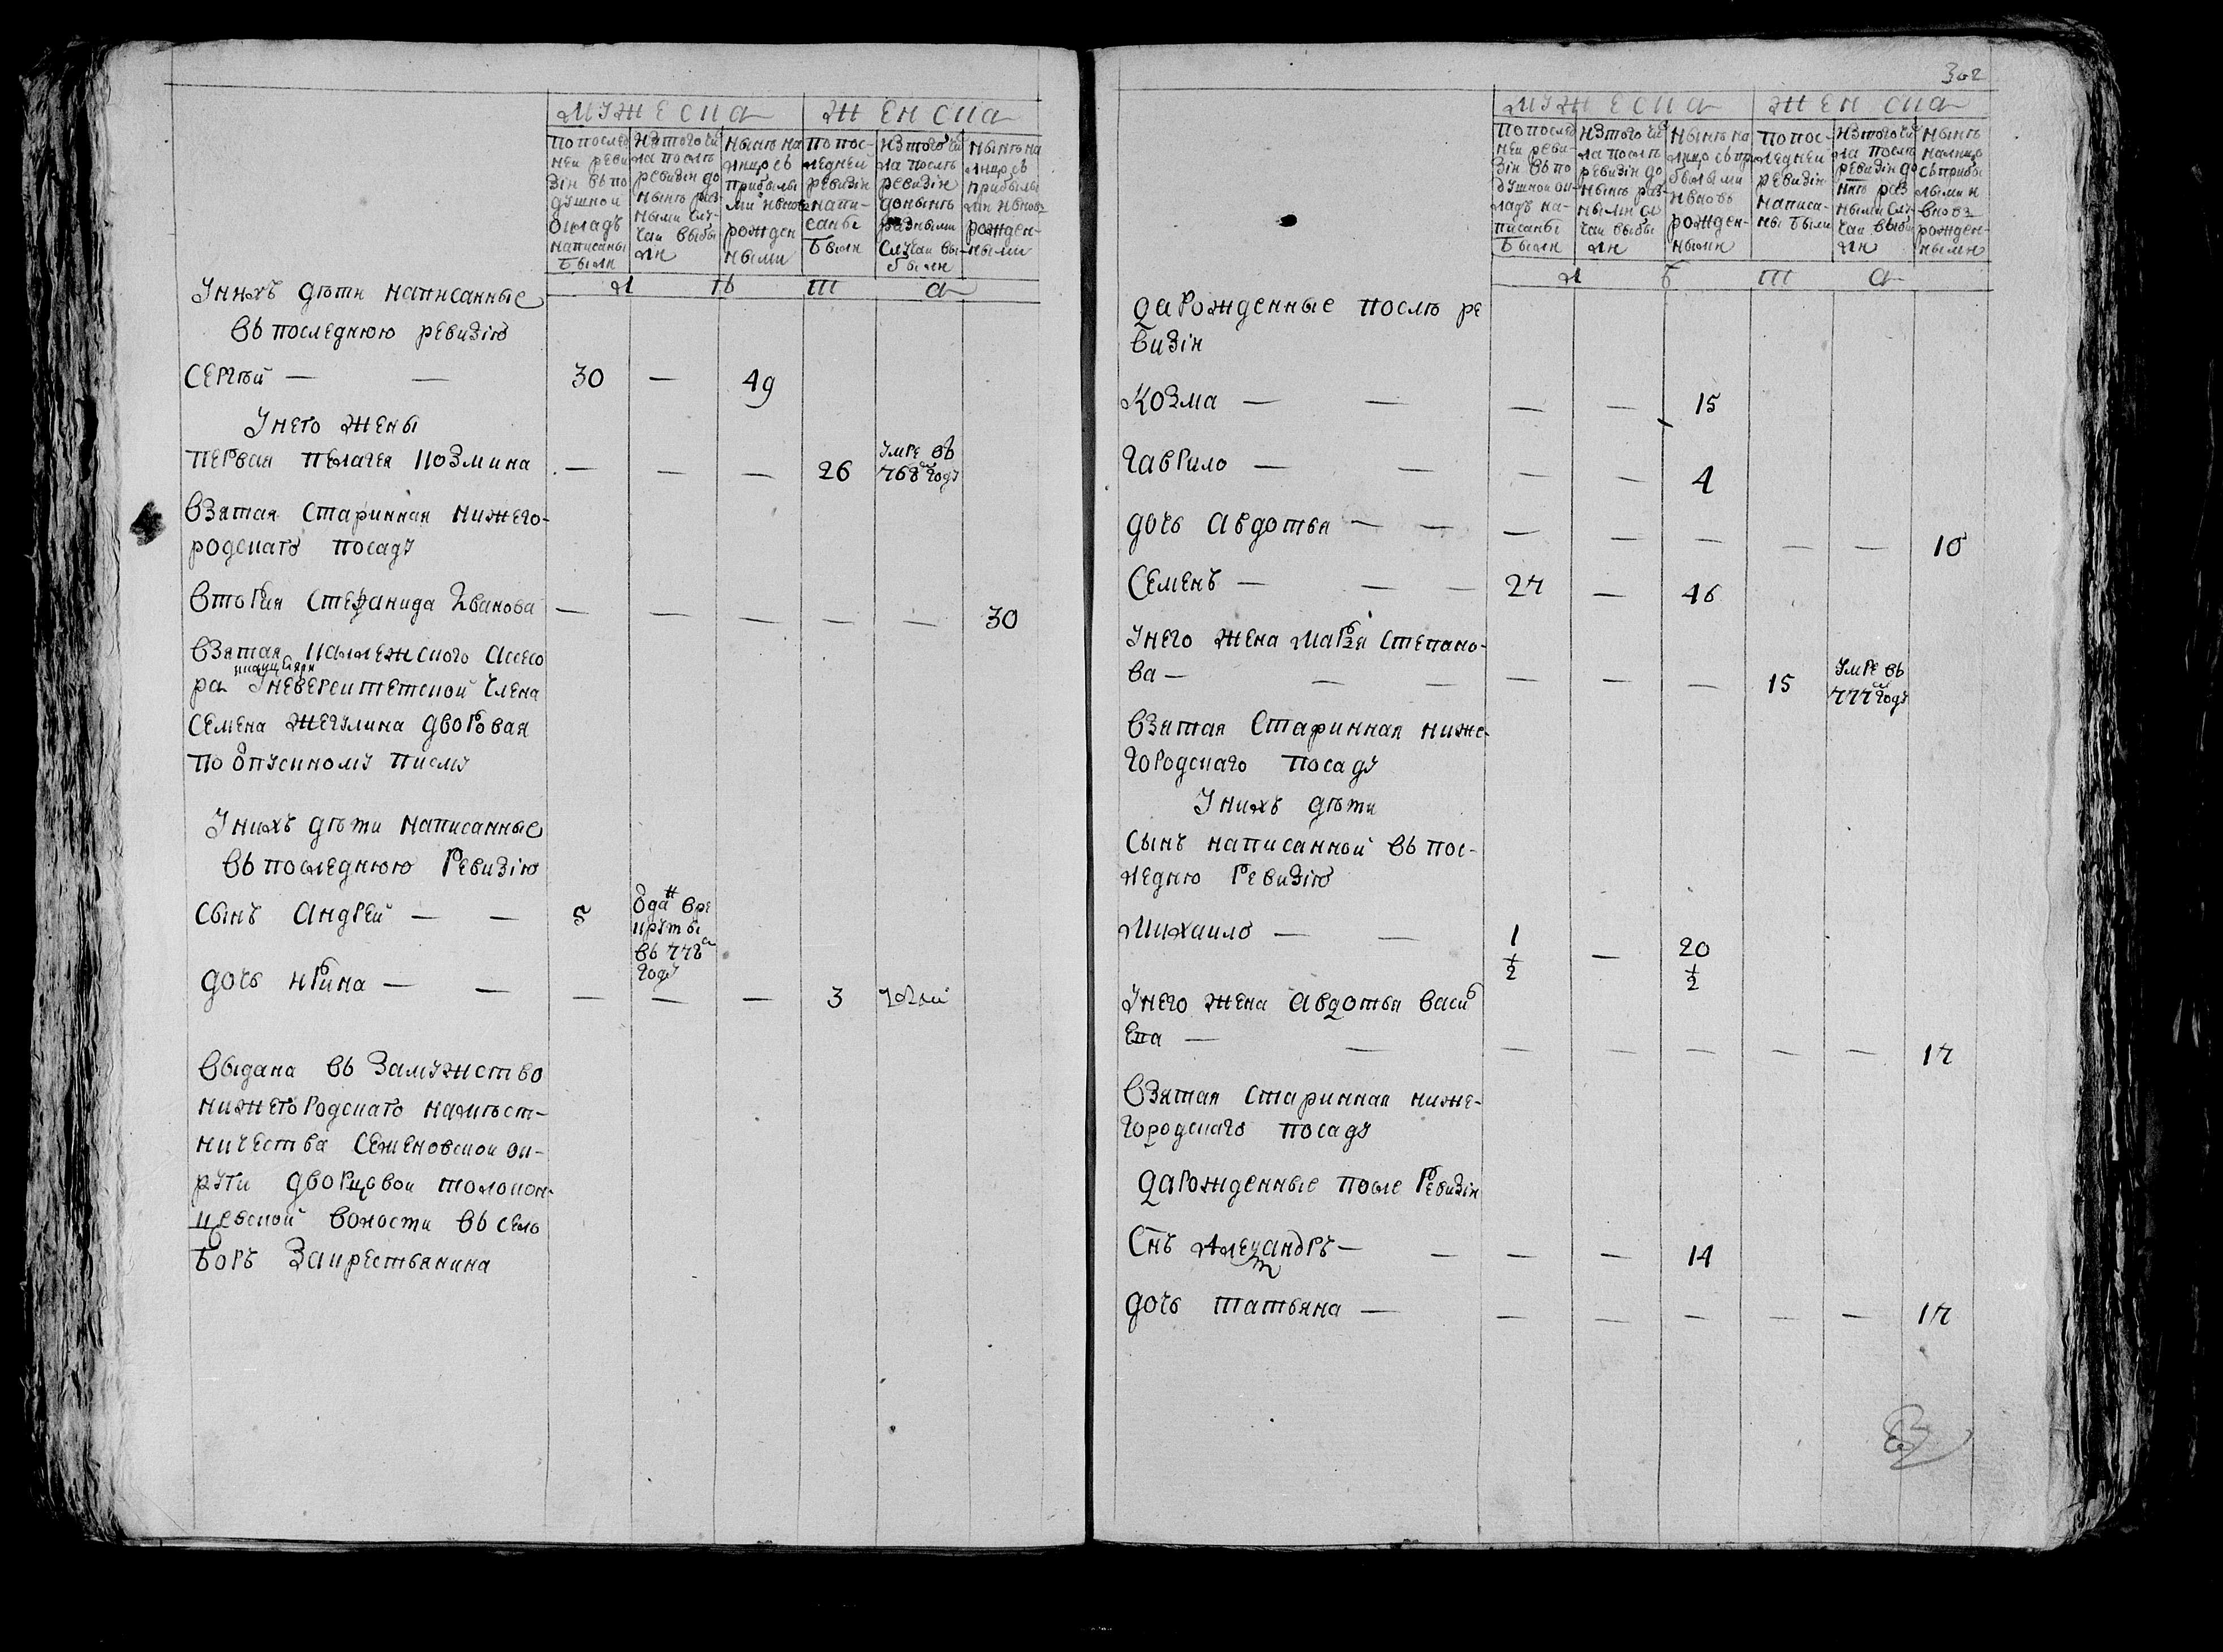 мужеска женска
по послед ней реви зіи въ по душной окладъ написаны были
из того чи сла послѣ ревизіи до нынѣ раз ными слу чаи выбы ли
нынѣ на лицо съ прибылы ми и вновь рожден ными
по пос- ледней ревизіи напи- саны были
из того чи сла послѣ ревизіи донынѣ разными случаи вы- были
нынѣ на лицо съ прибылы ми и вновь рожден- ными
л ѣ т а
У нихъ дѣти написанные
въ последнюю ревизію
Сергѣй — — 30 — 49
У него жены
первая пелагея козмина — — — 26 умре въ 768м году
взятая старинная нижего-
родскаго посаду
вторая стефанида иванова — — — — — 30
взятая колежского асесо
ра униве́рситетской члена
семена жегулина дворовая
по отпускному писму
У нихъ дѣти написанные
въ последнюю ревизію
сынъ андрей — — 5 отдан в ре круты въ 778м году
дочь ирина — — — — — 3
выдана въ замужство
нижегородскаго намѣст-
ничества семеновской ок-
руги дворцовои толокон-
цевской волости въ село
боръ за крестьянина
302
мужеска женска
по послед ней реви- зіи въ по душной ок- ладъ на- писаны были
из того чи сла послѣ ревизіи до нынѣ раз- ными слу чаи выбы ли
нынѣ на лицо съ при былыми и вновь рожден- ными
по пос- ледней ревизіи написа- ны были
из того чи сла послѣ ревизіи до нынѣ раз ными слу чаи выбы ли
нынѣ налицо съ прибы лыми и вновь рожден- ными
л ѣ т а
Зарожденные послѣ ре
визіи
Козма — — — — 15
гаврило — — — — 4
дочь авдотья — — — — — — — 10
Семенъ — — — 27 — 46
У него жена марѳя степано-
ва — — — — — — 15 умре въ 777м году
взятая старинная ниже-
городскаго посаду
У нихъ дѣти
сынъ написанной въ пос-
леднюю ревизію
михаило — — 1 1/2 — 20 1/2
У него жена авдотья васил
ева — — — — — — — 17
взятая старинная ниже-
городскаго посаду
Зарожденные после ревизіи
Снъ александръ — — — — 14
дочь татьяна — — — — — — 17